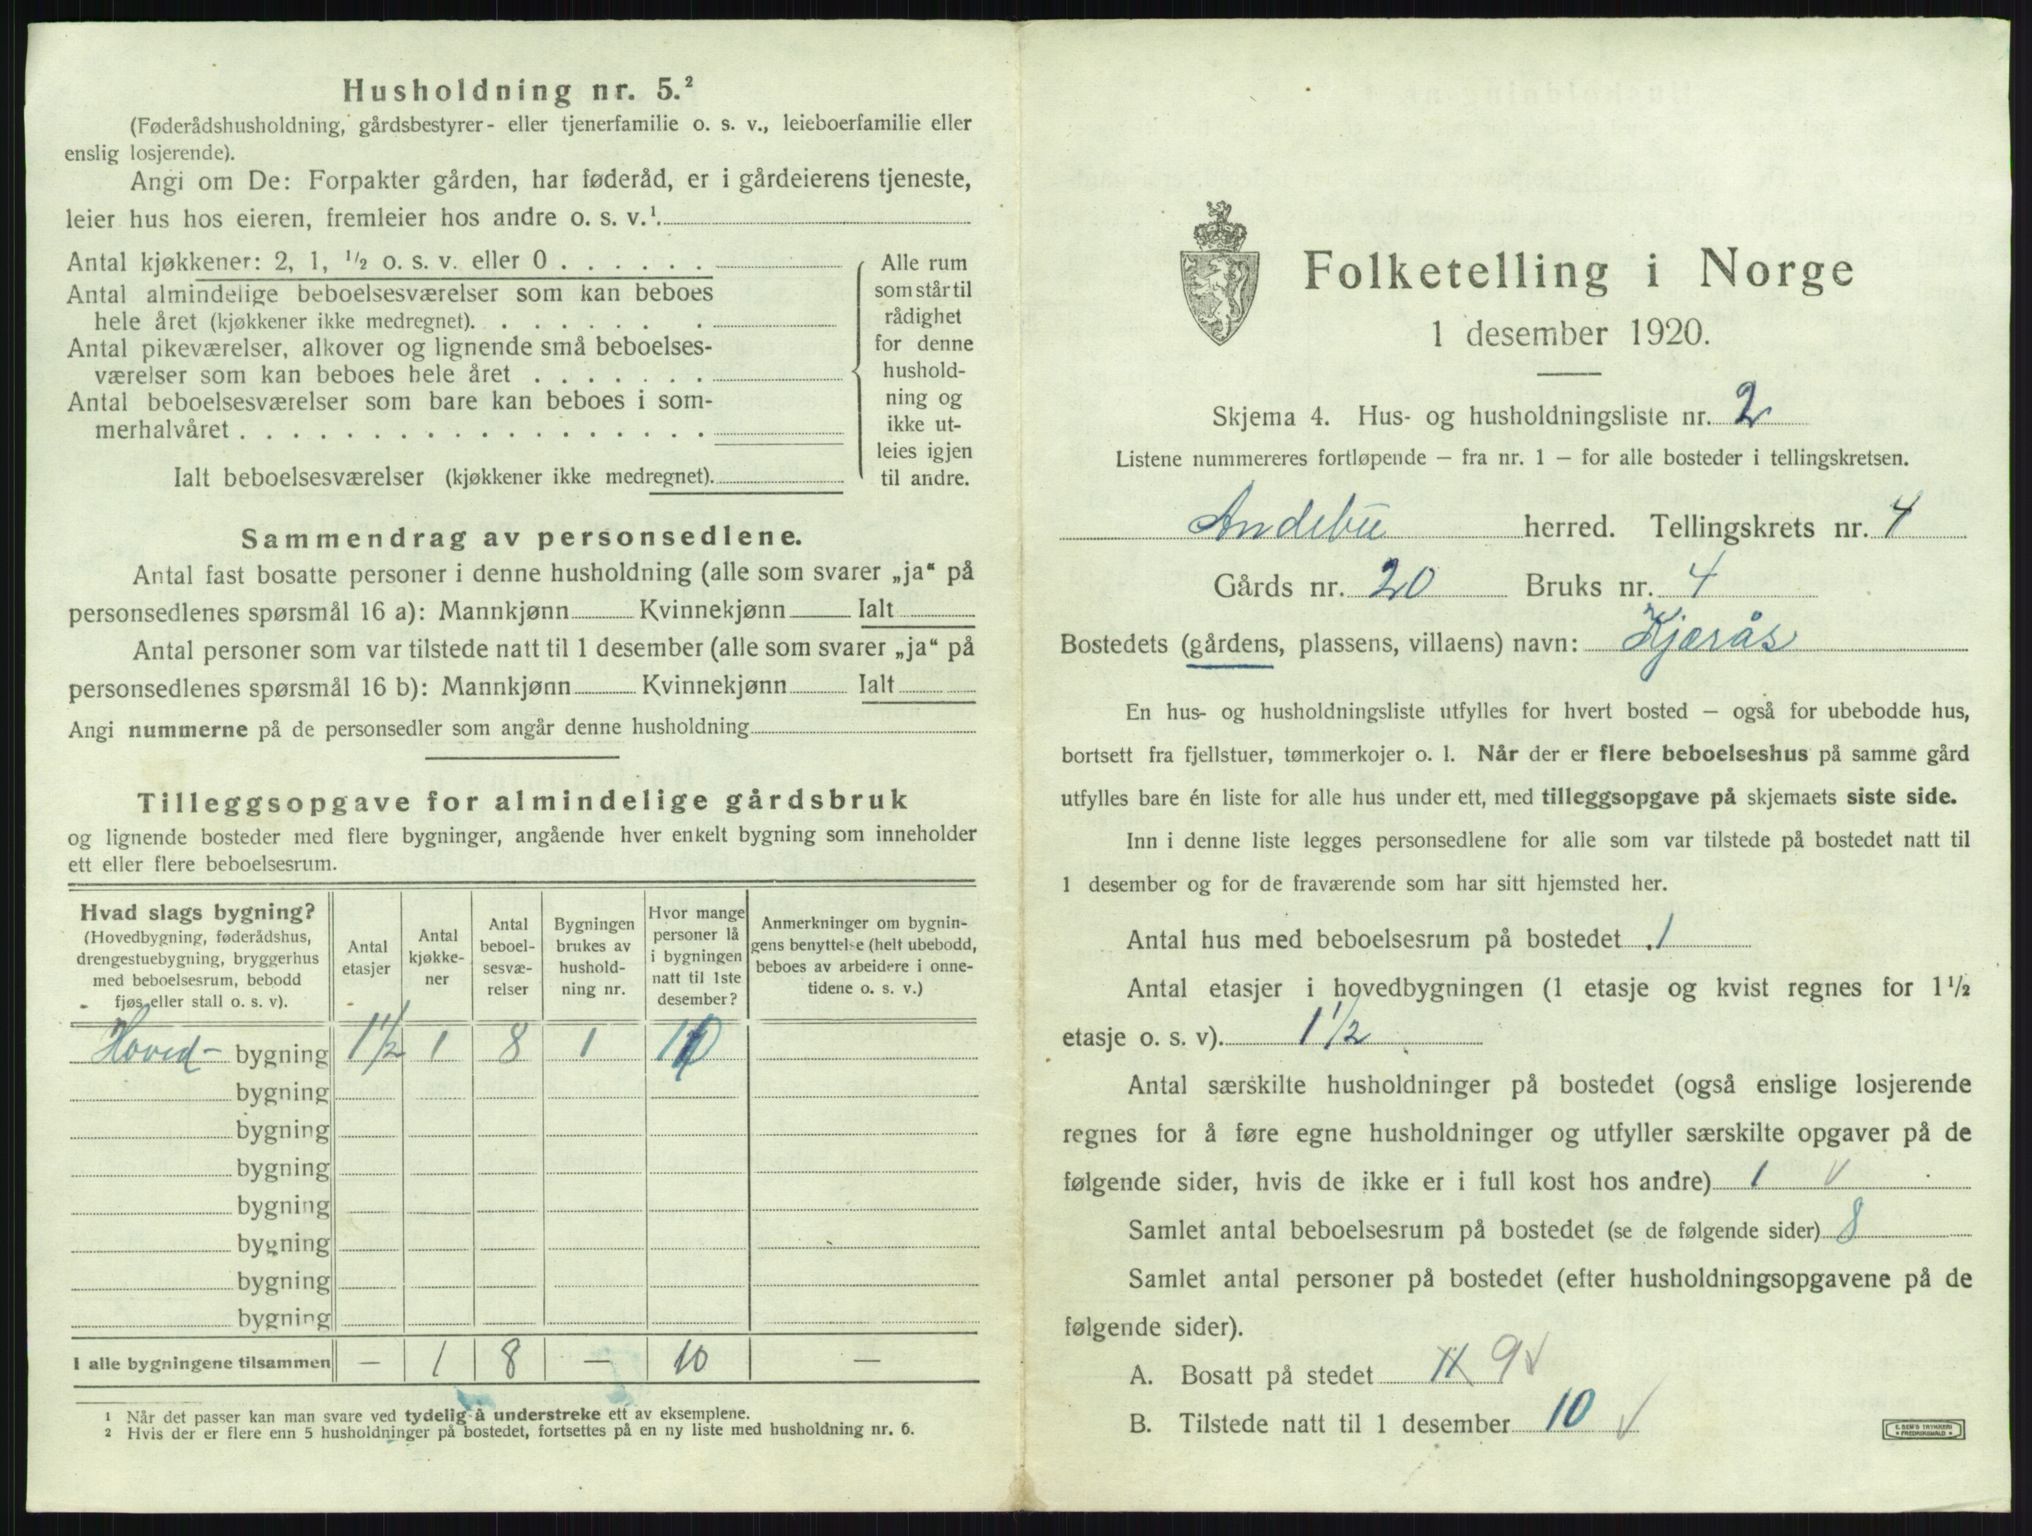 Husholdning nr. 5.²
(Føderådshusholdning, gårdsbestyrer- eller tjenerfamilie o. s. v., leieboerfamilie eller
enslig losjerende).
Angi om De: Forpakter gården, har føderåd, er i gårdeierens tjeneste,
leier hus hos eieren, fremleier hos andre o. s. v.¹.
Antal kjøkkener: 2, 1, ½ o. s. v. eller 0 . . . . . .
Antal almindelige beboelsesværelser som kan beboes
hele året (kjøkkener ikke medregnet). . . . . . . .
Antal pikeværelser, alkover og lignende små beboelses-
værelser som kan beboes hele året . . . . . . .
Antal beboelsesværelser som bare kan beboes i som-
merhalvåret . . . . . . . . . . . . . . . . . .
Ialt beboelsesværelser (kjøkkener ikke medregnet).
Alle rum
som står til
rådighet
for denne
hushold-
ning og
ikke ut-
leies igjen
til andre.
Sammendrag av personsedlene.
Antal fast bosatte personer i denne husholdning (alle som svarer „ja“ på
personsedlenes spørsmål 16 a): Mannkjønn Kvinnekjønn Ialt
Antal personer som var tilstede natt til 1 desember (alle som svarer „ja“ på
personsedlenes spørsmål 16 b): Mannkjønn Kvinnekjønn Ialt
Angi nummerne på de personsedler som angår denne husholdning
Tilleggsopgave for almindelige gårdsbruk
og lignende bosteder med flere bygninger, angående hver enkelt bygning som inneholder
ett eller flere beboelsesrum.
Hvad slags bygning?
(Hovedbygning, føderådshus,
drengestuebygning, bryggerhus
med beboelsesrum, bebodd
fjøs eller stall o. s. v).
Antal
etasjer
Antal
kjøkke-
ner
Antal
beboel-
sesvæ-
relser
Bygningen
brukes av
hushold-
ning nr.
Hvor mange
personer lå
i bygningen
natt til 1ste
desember?
Anmerkninger om bygnin-
gens benyttelse (helt ubebodd,
beboes av arbeidere i onne-
tidene o. s. v.)
Hoved- bygning 1½ 1 8 1 10
bygning
bygning
bygning
bygning
bygning
bygning
bygning
I alle bygningene tilsammen — 1 8 — 10 —
¹ Når det passer kan man svare ved tydelig å understreke ett av eksemplene.
² Hvis der er flere enn 5 husholdninger på bostedet, fortsettes på en ny liste med husholdning nr. 6.
Folketelling i Norge
1 desember 1920.
Skjema 4. Hus- og husholdningsliste nr. 2
Listene nummereres fortløpende — fra nr. 1 — for alle bosteder i tellingskretsen.
Andebu herred. Tellingskrets nr. 4
Gårds nr. 20 Bruks nr. 4
Bostedets (gårdens, plassens, villaens) navn: Kjærås
En hus- og husholdningsliste utfylles for hvert bosted — også for ubebodde hus,
bortsett fra fjellstuer, tømmerkojer o. l. Når der er flere beboelseshus på samme gård
utfylles bare én liste for alle hus under ett, med tilleggsopgave på skjemaets siste side.
Inn i denne liste legges personsedlene for alle som var tilstede på bostedet natt til
1 desember og for de fraværende som har sitt hjemsted her.
Antal hus med beboelsesrum på bostedet 1
Antal etasjer i hovedbygningen (1 etasje og kvist regnes for 1½
etasje o. s. v). 1½
Antal særskilte husholdninger på bostedet (også enslige losjerende
regnes for å føre egne husholdninger og utfyller særskilte opgaver på de
følgende sider, hvis de ikke er i full kost hos andre) 1 v
Samlet antal beboelsesrum på bostedet (se de følgende sider) 8
Samlet antal personer på bostedet (efter husholdningsopgavene på de
følgende sider).
A. Bosatt på stedet 11 9 v
B. Tilstede natt til 1 desember 10 v
E. SEM'S TRYKKERI
FREDRIKSHALD